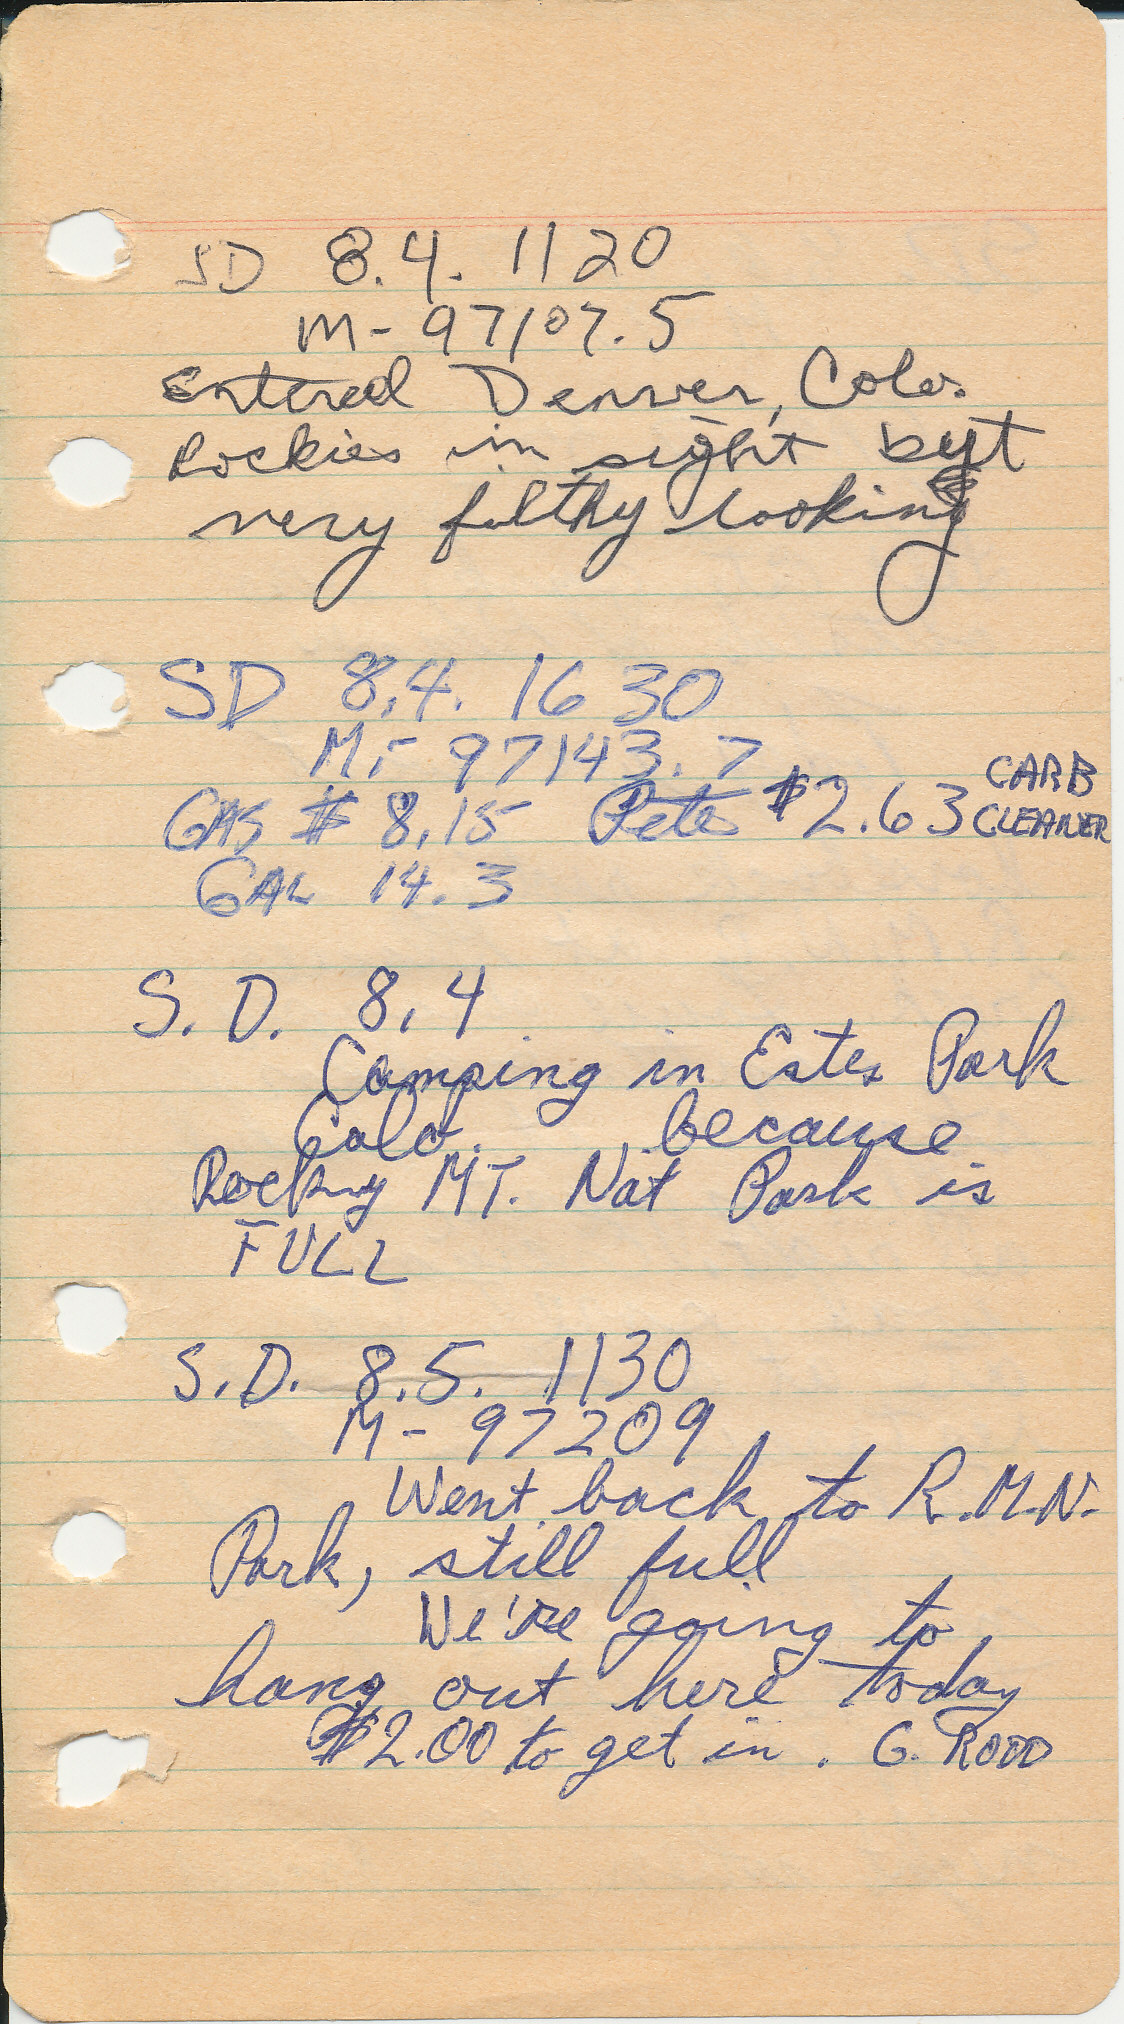 SD 8.4. 1120
M- 97107.5
Entered Denver, Colo.
Rockies in sight byt
very filthy looking
SD 8,4. 1630
M,- 97143.7
GAS $ 8,15 Pete $2.63 CARB CLEANER
GAL 14.3
S. D. 8,4
Camping in Estes Park
Colo. because
Rocky MT. Nat Park is
FULL
S.D. 8.5. 1130
M- 97209
Went back to R.M.N.
Park, still full
We're going to
hang out here today
$2.00 to get in. G. ROOD